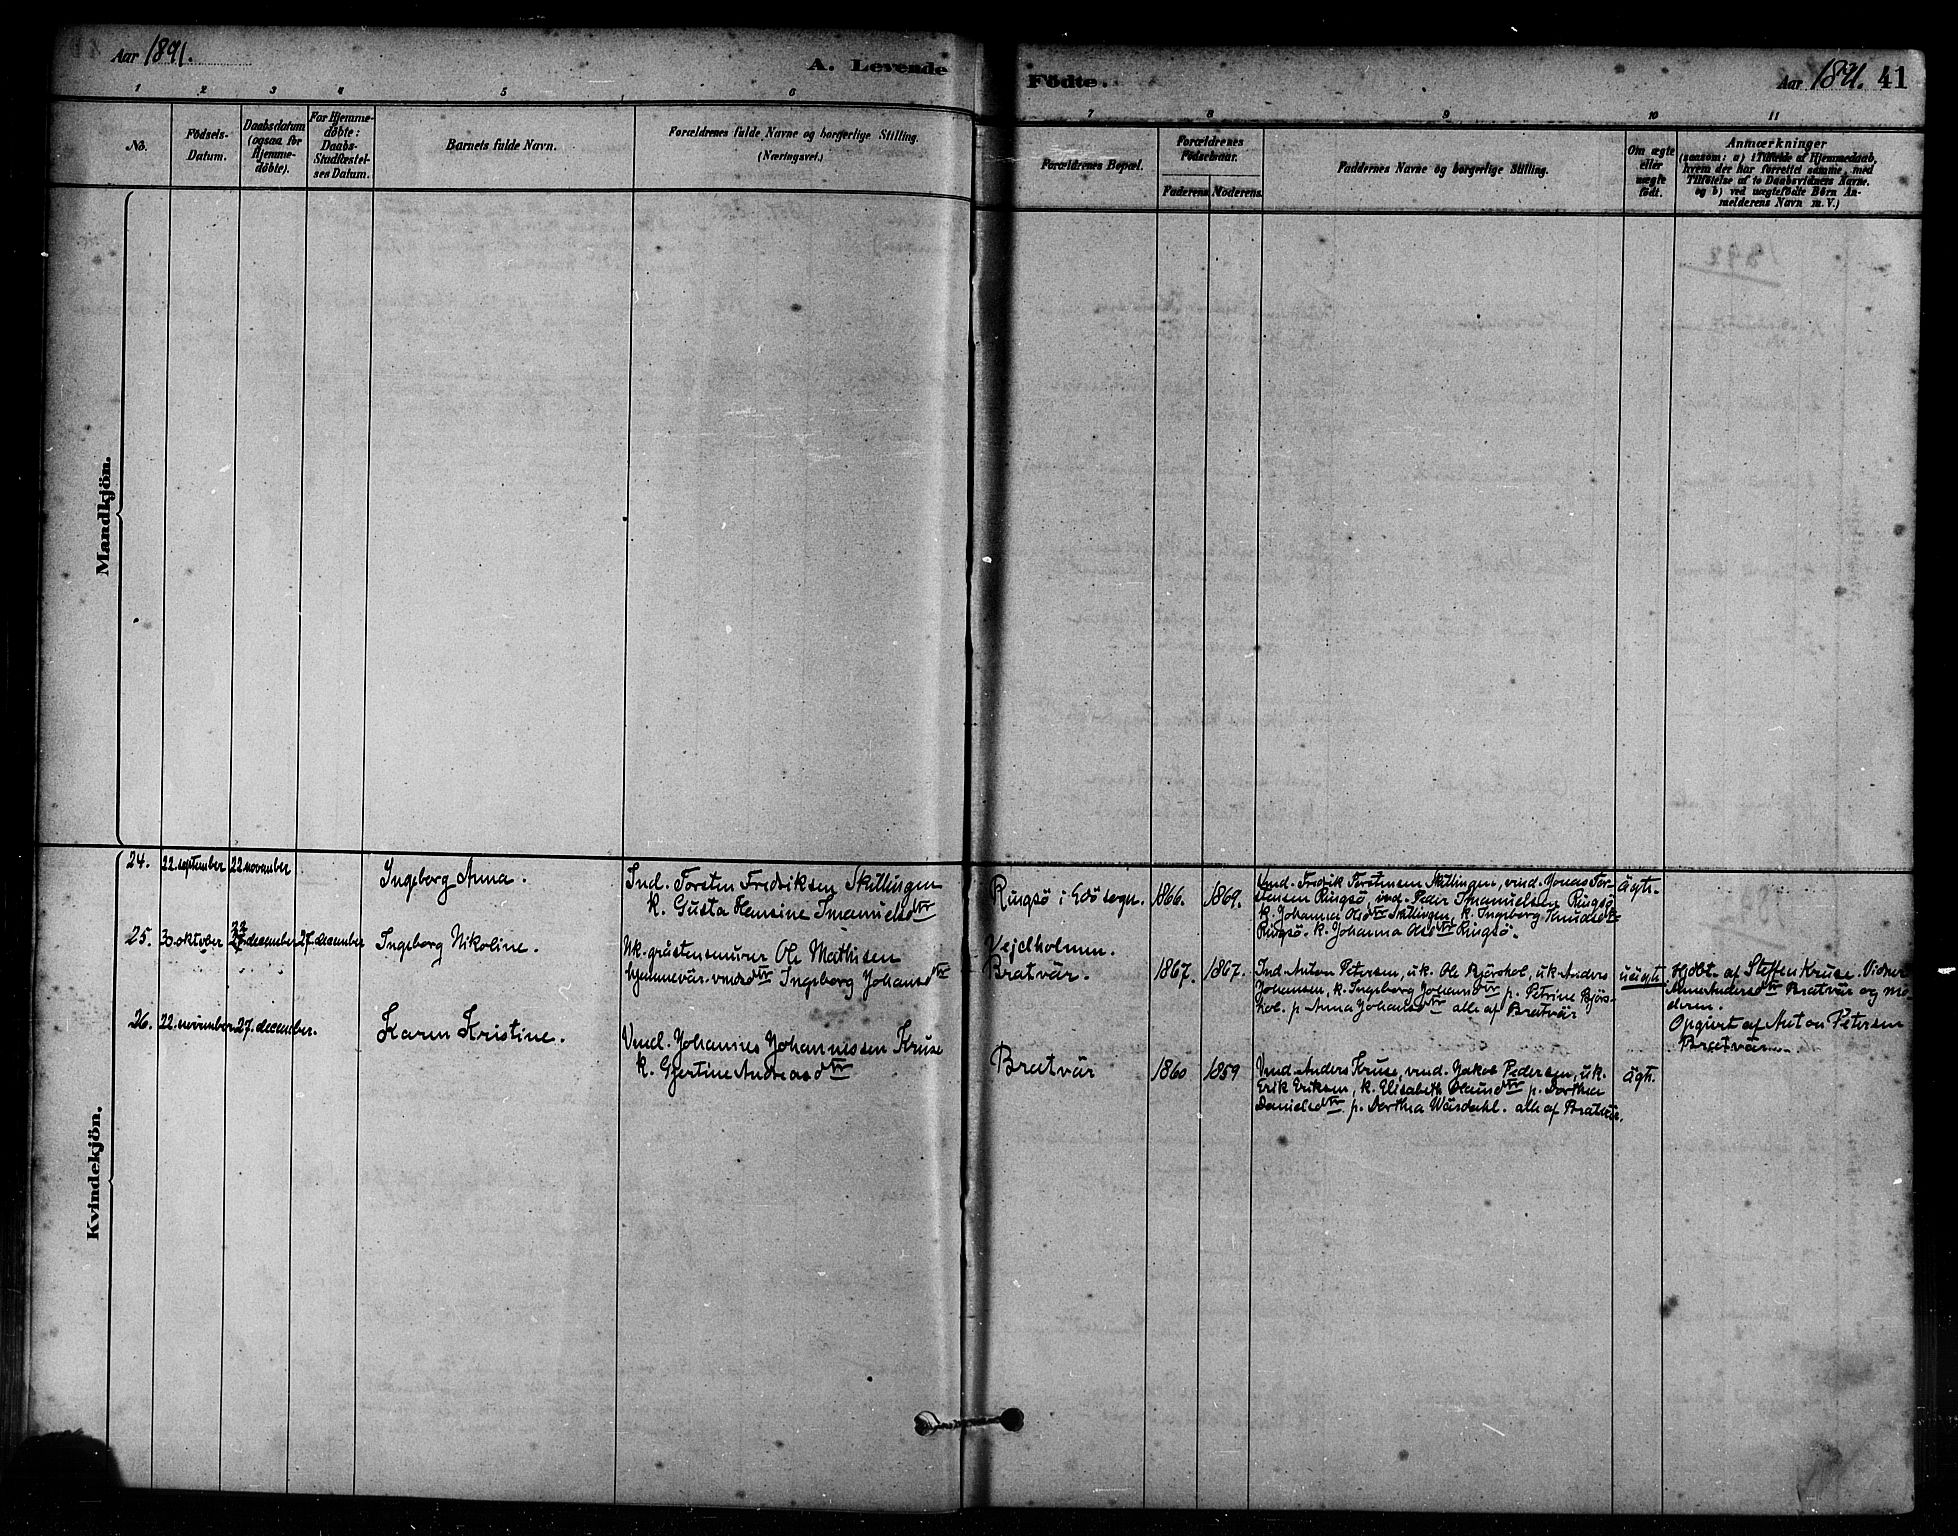 Aar 1891.
A. Levende
Födte.
Aar 1891. 41
1 2 3 4 5 6
7 8 9 10 11
No.
Födsels-
Datum.
Daabsdatum
(ogsaa for
Hjemme-
döbte).
For Hjemme-
døbte:
Daabs-
Stadfæstel-
ses Datum.
Barnets fulde Navn.
Forældrenes fulde Navne og borgerlige Stilling.
(Næringsvei.)
Forældrenes Bopæl.
Forældrenes
Födselsaar.
Faderens. Moderens.
Faddernes Navne og borgerlige Stilling.
Om ægte
eller
uægte
født.
Anmærkninger
(saasom: a) i Tilfælde af Hjemmedaab,
hvem der har forrettet samme, med
Tilføielse af to Daabsvidners Navne.
og b) ved uægtefødte Børn An-
melderens Navn m. V.)
Mandkjön.
Kvindekjön.
24. 22 september 22 november
Ingeborg Anna.
Ind. Torsten Fredriksen Skillingen
k. Gusta Hansine Imanuelsdtr
Ringsö i Edö sogn. 1866. 1869.
Vmd. Fredrik Torstensen Skillingen, vmd. Jonas Tor-
stensen Ringsö, vmd. Peder Imanuelsen Ringsö
k. Johanna Olsdtr Skillingen, k. Ingeborg Knudsdtr
Ringsö. k. Johanna Olsdtr Ringsö.
ägte.
25. 30 oktober december 27. december
Ingeborg Nikoline.
Uk. gråstensmurer Ole Mathisen
hjemmevär. vmdsdtr Ingeborg Johansdtr
Vejelholmen.
Bratvär. 1867. 1867.
Ind. Anton Petersen, u.k. Ole Björshol, u.k. Anders
Johansen, k. Ingeborg Johansdtr p. Petrine Björs-
hol. p. Anna Johansdtr alle af Bratvär
uägte.
Hjdbt. af Steffen Kruse. Vidner
Andersdtr Bratvär og Mo-
deren.
Opgivet af Anton Petersen
Bratvär.
26. 22. november 27. december.
Karen Kristine.
Vmd. Johannes Johannessen Kruse
k. Gjertine Andreasdtr
Bratvär 1860 1859
Vmd. Anders Kruse, vmd. Jakob Pedersen, u.k.
Erik Eriksen, k. Elisabeth Olausdtr p. Dorthea
Danielsdtr, p. Dorthea Wårdahl. alle af Bratvär.
ägte.